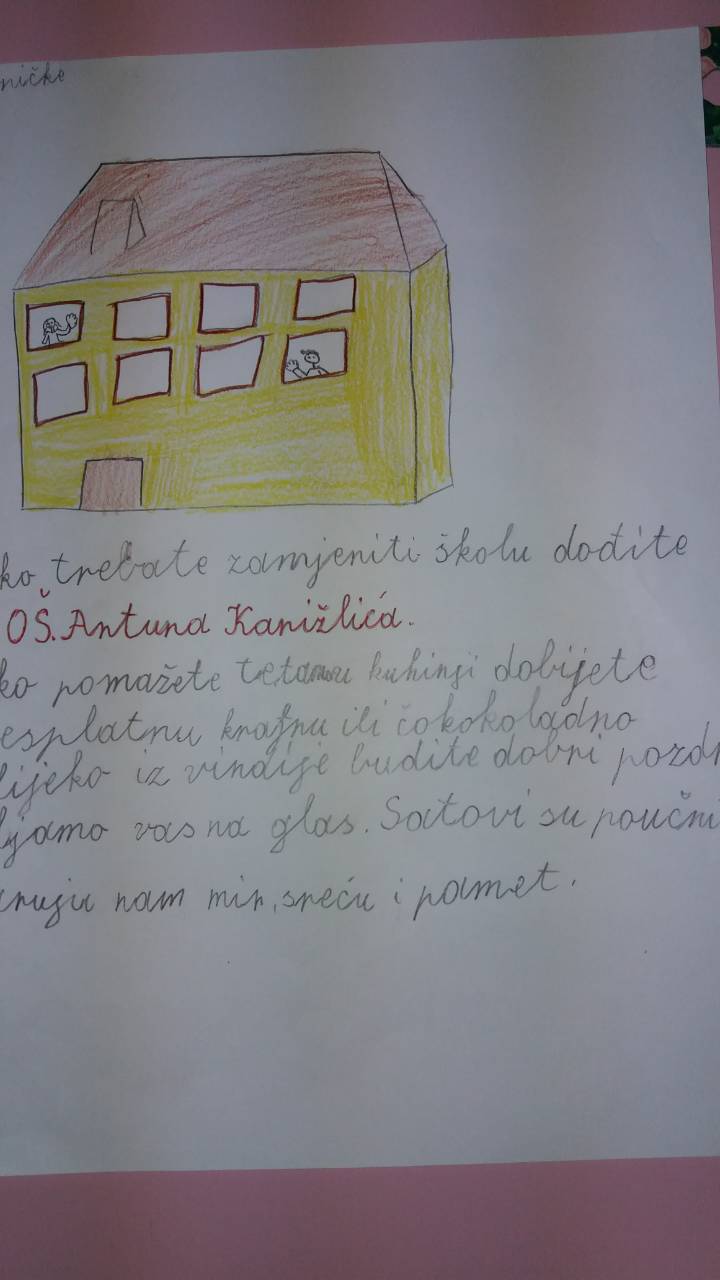 ničke
ko trebate zamjeniti školu dođite
OŠ. Antuna Kanižlića.
ko pomažete kuhinji dobijete
esplatnu krafnu ili čokokoladno
lijeko iz vindije budite dobri pozdr
ljamo vas na glas. Satovi su poučni
ruju nam mir, sreću i pamet.